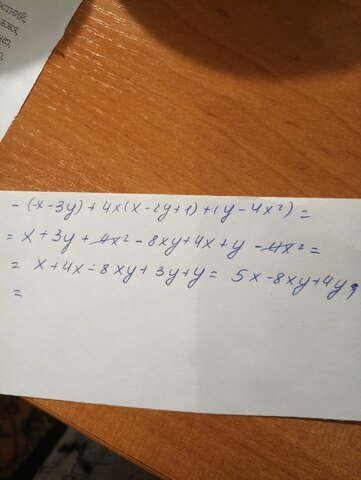 - (-x-3y)+4x(x-2y+1)+(y-4x²)=
= x+3y+4x²-8xy+4x+y-4x²=
= x+4x-8xy+3y+y= 5x-8xy+4y;
=